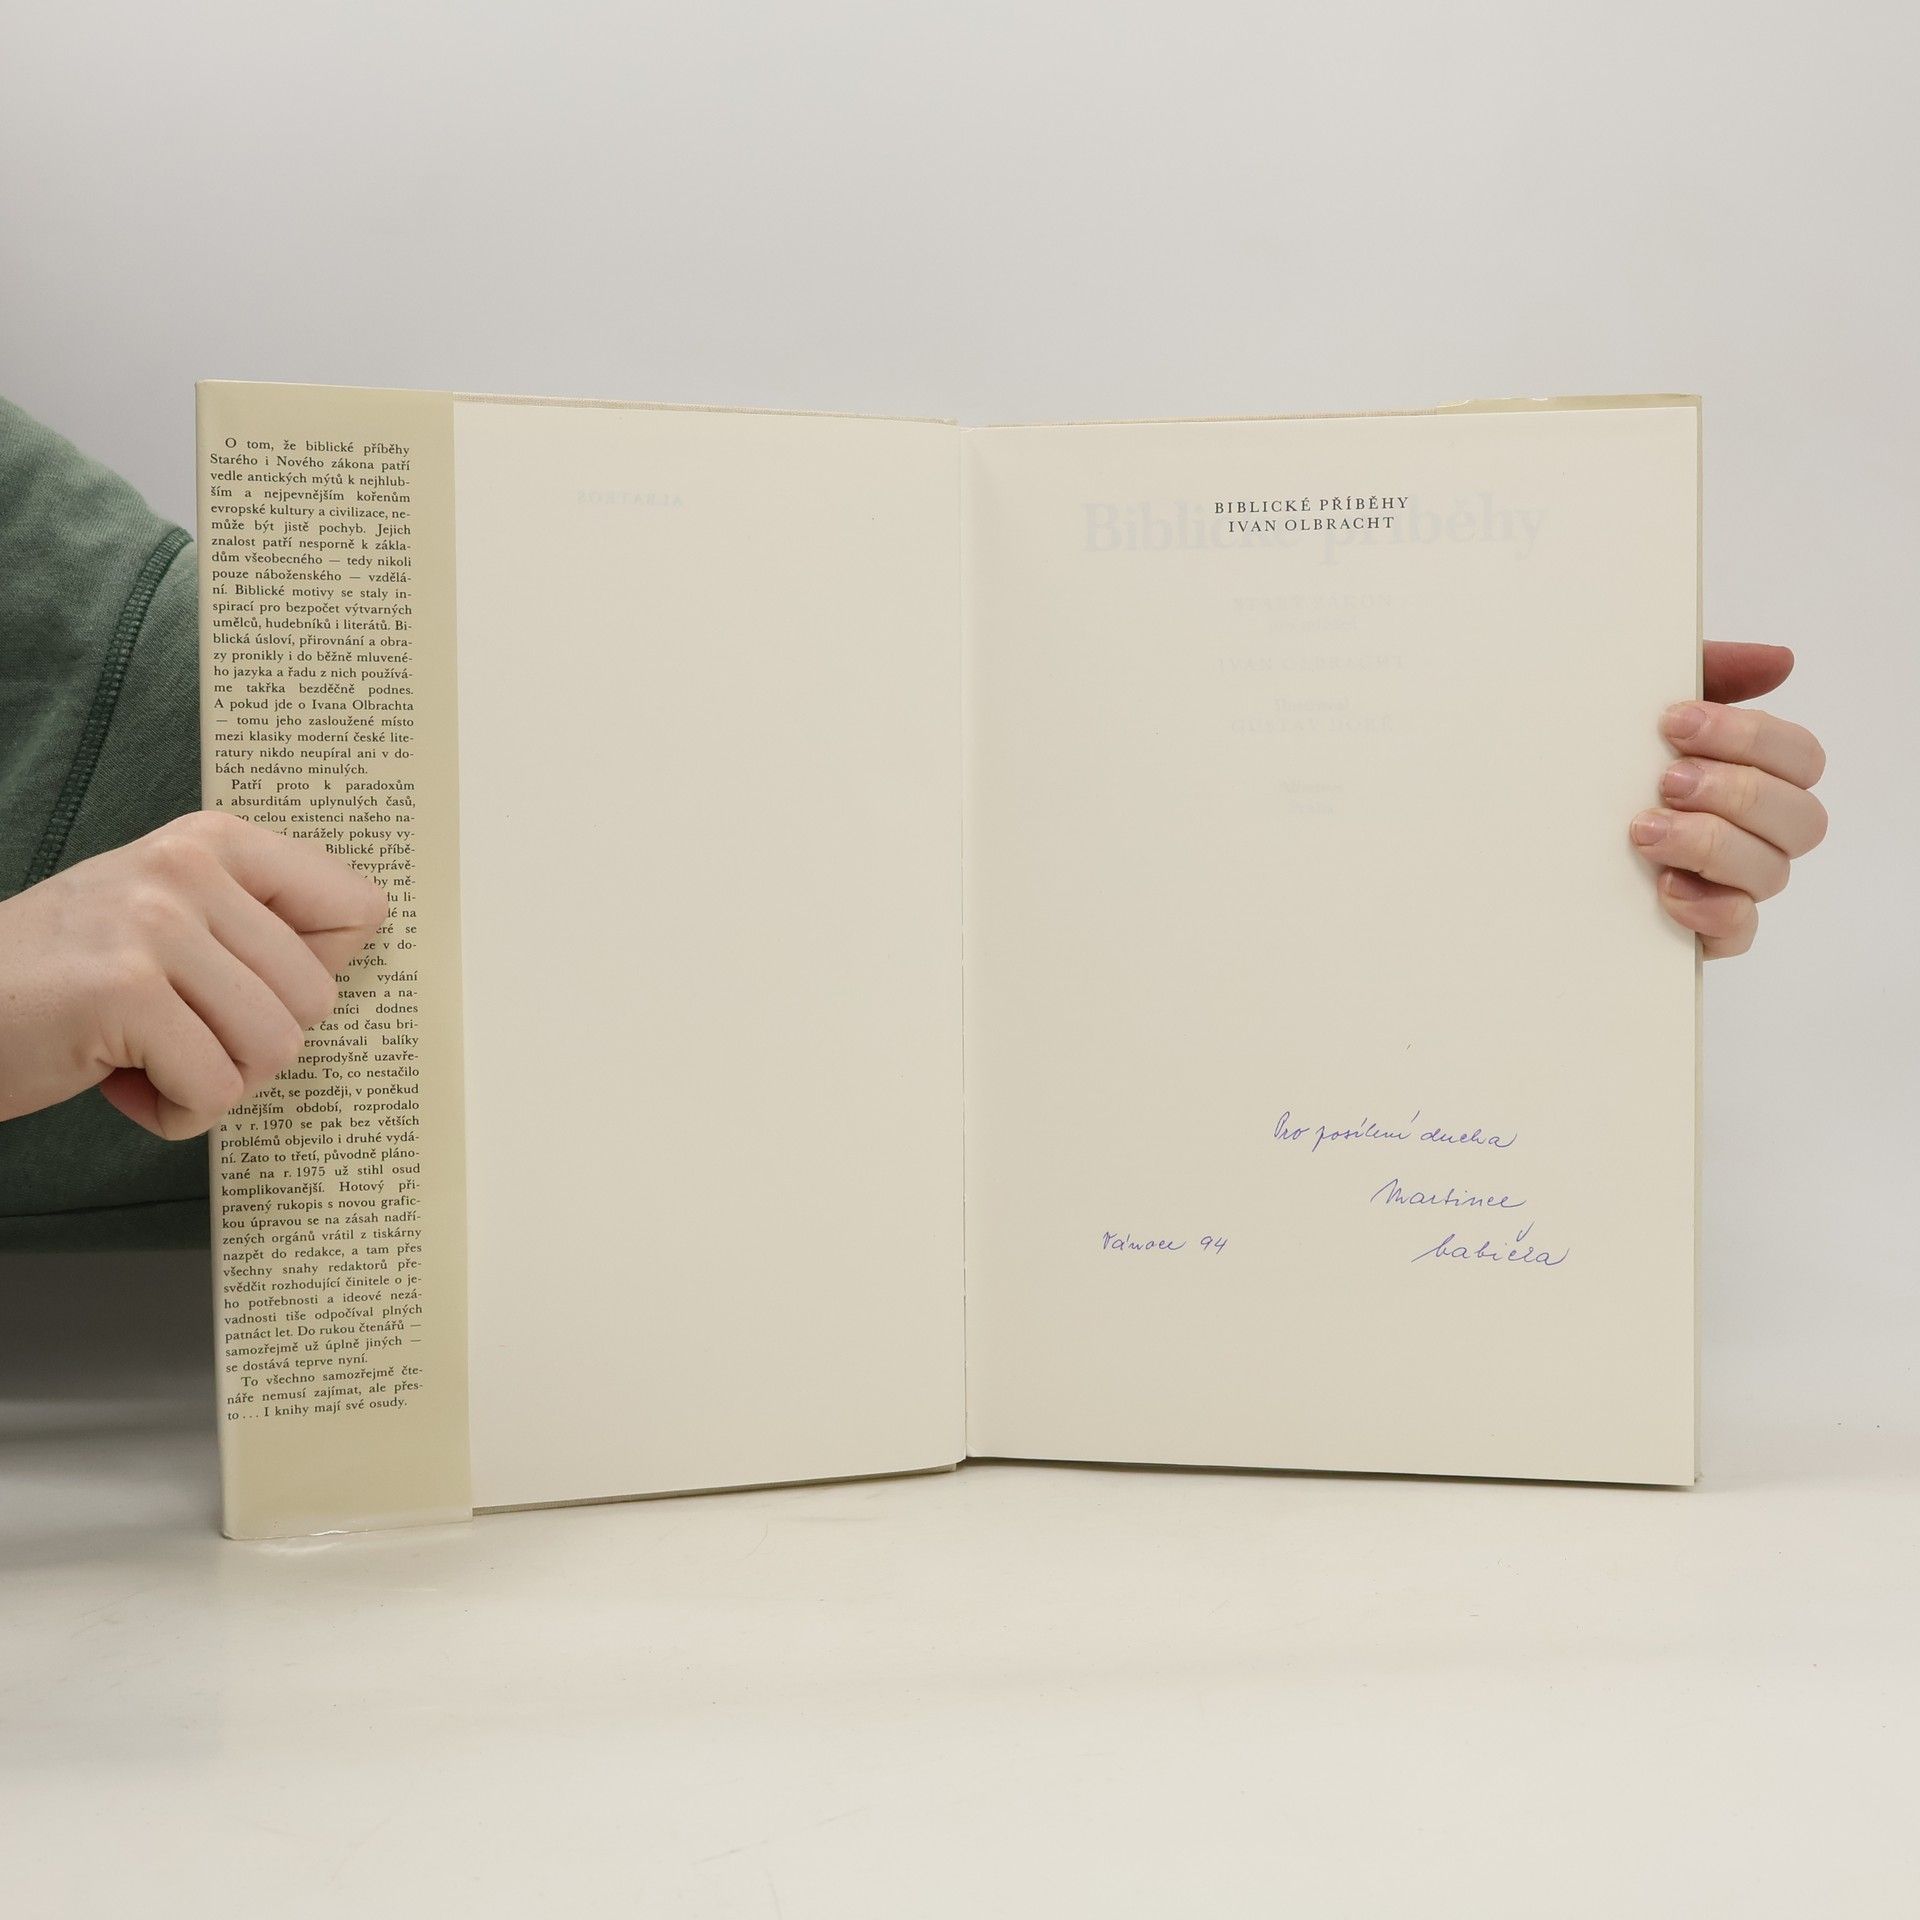 O tom, že biblické příběhy
Starého i Nového zákona patří
vedle antických mýtů k nejhlub-
ším a nejpevnějším kořenům
evropské kultury a civilizace, ne-
může být jistě pochyb. Jejich
znalost patří nesporně k zákla-
dům všeobecného — tedy nikoli
pouze náboženského — vzdělá-
ní. Biblické motivy se staly in-
spirací pro bezpočet výtvarných
umělců, hudebníků i literátů. Bi-
blická úsloví, přirovnání a obra-
zy pronikly i do běžně mluvené-
ho jazyka a řadu z nich používá-
me takřka bezděčně podnes.
A pokud jde o Ivana Olbrachta
— tomu jeho zasloužené místo
mezi klasiky moderní české lite-
ratury nikdo neupíral ani v do-
bách nedávno minulých.
Patří proto k paradoxům
a absurditám uplynulých časů,
po celou existenci našeho na-
narážely pokusy vy-
Biblické příbě-
převyprávě-
by mě-
li-
na
se
v do-
vydání
staven a na-
dodnes
čas od času bri-
balíky
neprodyšně uzavře-
skladu. To, co nestačilo
se později, v poněkud
období, rozprodalo
a v r. 1970 se pak bez větších
problémů objevilo i druhé vydá-
ní. Zato to třetí, původně pláno-
vané na r. 1975 už stihl osud
komplikovanější. Hotový při-
pravený rukopis s novou grafic-
kou úpravou se na zásah nadří-
zených orgánů vrátil z tiskárny
nazpět do redakce, a tam přes
všechny snahy redaktorů pře-
svědčit rozhodující činitele o je-
ho potřebnosti a ideové nezá-
vadnosti tiše odpočíval plných
patnáct let. Do rukou čtenářů —
samozřejmě už úplně jiných —
se dostává teprve nyní.
To všechno samozřejmě čte-
náře nemusí zajímat, ale přes-
to . . . I knihy mají své osudy.
ALBATROS
BIBLICKÉ PŘÍBĚHY
IVAN OLBRACHT
Biblické příběhy
STARÝ ZÁKON
IVAN OLBRACHT
Ilustroval
GUSTAV DORÉ
Albatros
Praha
Pro posílení ducha
Martince
babička
Vánoce 94